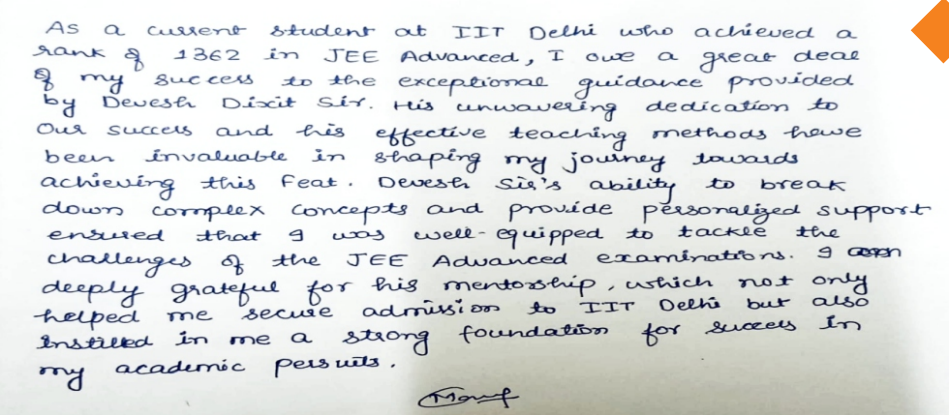 As a current student at IIT Delhi who achieved a
rank of 1362 in JEE Advanced, I owe a great deal
of my success to the exceptional guidance provided
by Devesh Dixit Sir. His unwavering dedication to
Our success and his effective teaching methods have
been invaluable in shaping my journey towards
achieving this feat. Devesh Sir's ability to break
down complex concepts and provide personalized support
ensured that I was well-equipped to tackle the
challenges of the JEE Advanced examinations. I
deeply grateful for his mentorship, which not only
helped me secure admission to IIT Delhi but also
instilled in me a strong foundation for success in
my academic persuits.